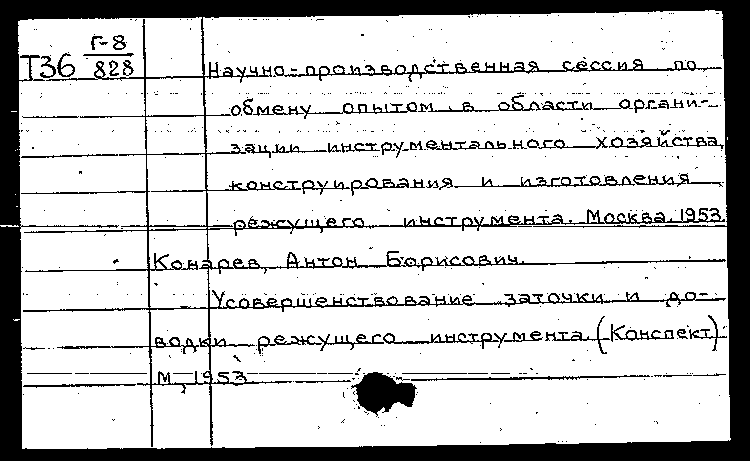 Т36 Г-8/828
Научно-производственная сессия по
обмену опытом в области органи-
зации инструментального хозяйства,
конструирования и изготовления
режущего инструмента. Москва. 1953.
Конарев, Антон Борисович.
Усовершенствование заточки и до-
водки режущего инструмента. (Конспект)
М., 1953